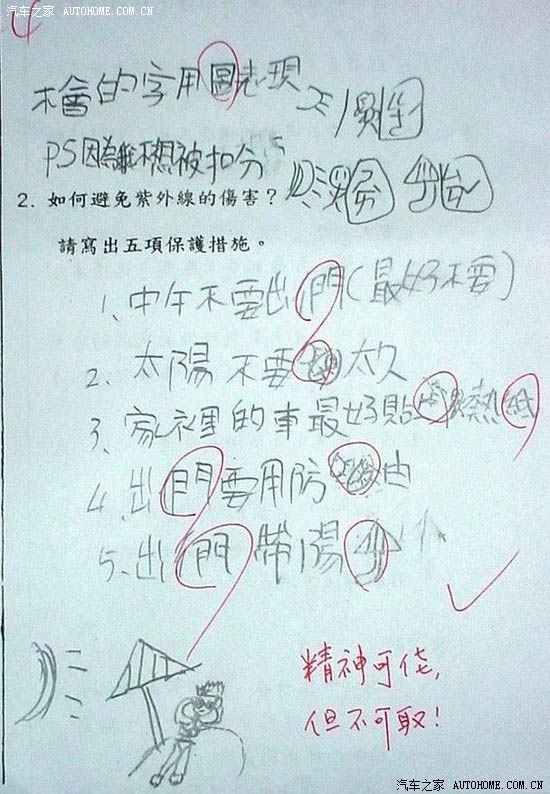 汽车之家 AUTOHOME.COM.CN
不會的字用圖表現
PS因為不想被扣分
2. 如何避免紫外線的傷害？
請寫出五項保護措施。
1、中午不要出門(最好不要)
2、太陽不要 太久
3、家裡的車最好貼 熱紙
4、出門要用防 油
5、出門帶陽
精神可佳，
但不可取！
汽车之家 AUTOHOME.COM.CN